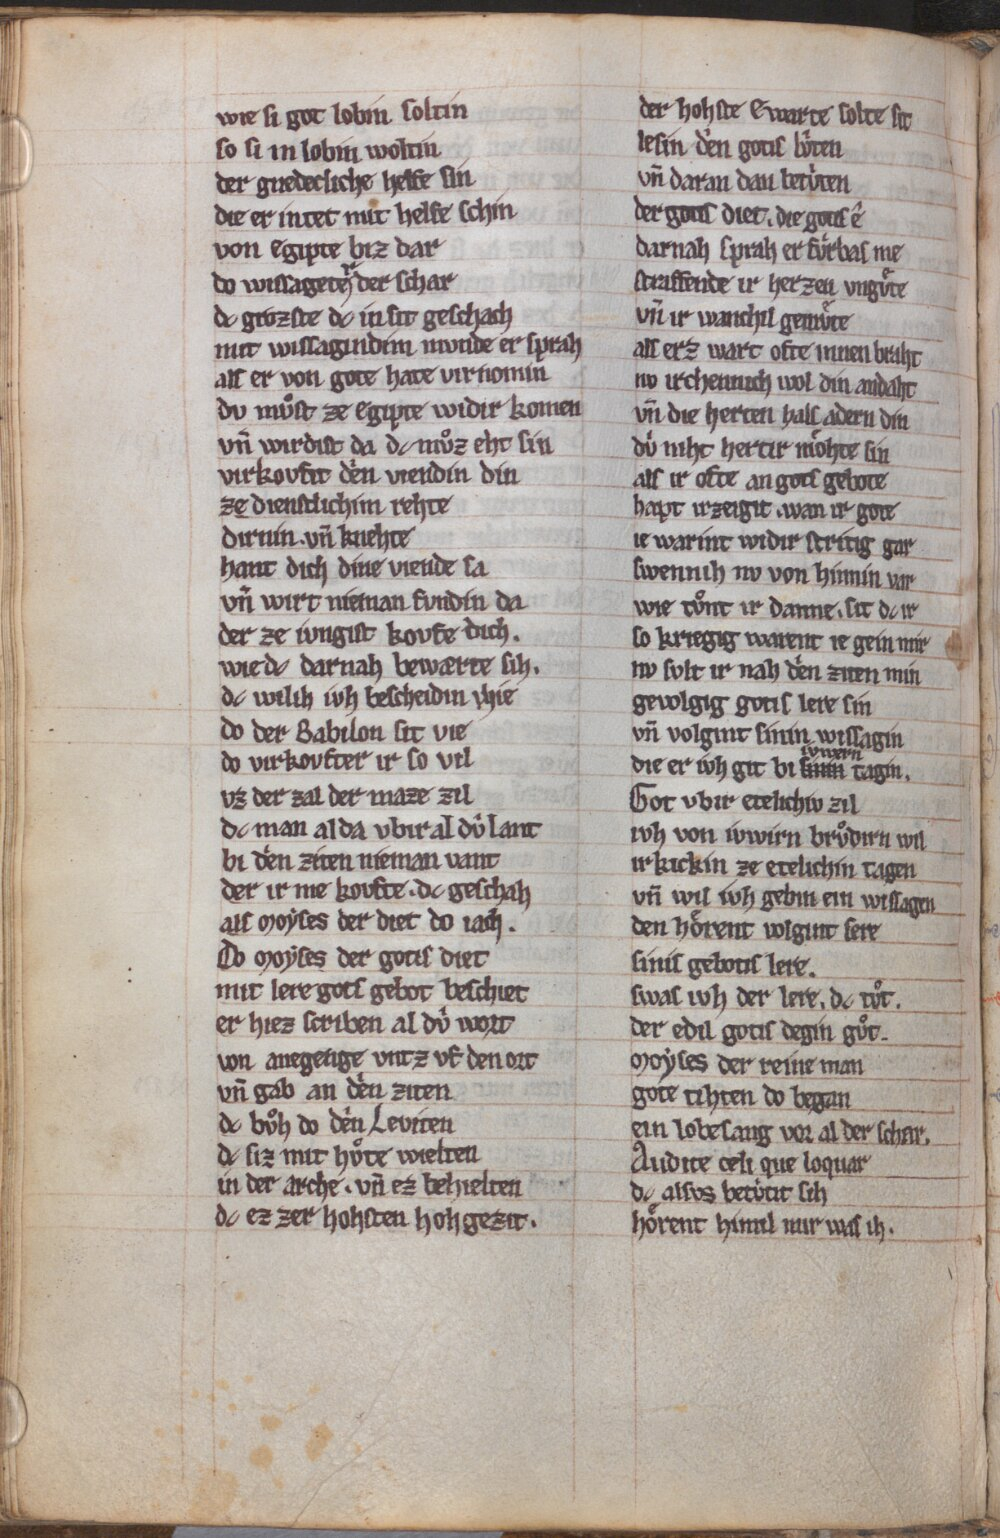 wie si got lobin soltin
so si in lobin woltin
der gnedecliche helfe sin
die er in tet mit helfe schin
von Egipte biz dar
do wissagete er der schar
dc grozste dc in sit geschach
mit wissagindim munde er sprah
als er von gote hate virnomin
du muͦst ze Egipte widir komen
vn̄ wirdist da dc muͦz eht sin
virkouft den viendin din
ze dienstlichim rehte
dirnin. vn̄ knehte
hant dich dine viende sa
vn̄ wirt nieman fundin da
der ze iungist koufe dich.
wie dc darnah bewærte sih.
dc wilih ivh bescheidin hie
do der Babilon sit vie
do virkoufter ir so vil
vz der zal der maze zil
dc man al da vbir al dv̍ lant
bi den ziten nieman vant
der ir me koufte. dc geschah
als Moẏses der diet do iach.
Do Moẏses der gotis diet
mit lere gots gebot beschiet
er hiez scriben al dv̍ wort
von anegenge vntz vf den ort
vn̄ gab an den ziten
dc buͦh do den Leviten
dc siz mit huͦte wielten
in der arche. vn̄ ez behielten
dc ez zer hohsten hohgezit.
der hohste Ewarte solte sit
lesin den gotis lv̍ten
vn̄ daran dan betv̍ten
der gotis diet. die gotis ê
darnah sprah er fv̍rbas me
straffende ir herzen vnguͤte
vn̄ ir wanchil gemuͤte
als erz wart ofte innen braht
nv irchennich wol din andaht
vn̄ die herten hals adern din
dv̍ niht hertir moͤhte sin
als ir ofte an gots gebote
hapt irzeigit. wan ir gote
ie warint widir stritig gar
swennih nv von hinnin var
wie tuͦnt ir danne. sit dc ir
so kriegig warent ie gein mir
nv sult ir nah den ziten min
gevolgig gotis lere sin
vn̄ volgint sinin wissagin
die er ivh git bi sinin iuwern tagin.
Got vbir etelichiv zil
ivh von iuwirn bruͦdirn wil
irkickin ze etelichin tagen
vn̄ wil ivh gebin ein wissagen
den hoͤrent volgint sere
sinis gebotis lere.
swas ivh der lere, dc tuͦt.
der edil gotis degin guͦt.
Moẏses der reine man
gote tihten do began
ein lobesang vor al der schar.
Audite celi que loquar
dc alsus betv̍tit sih
hoͤrent himil mir was ih.